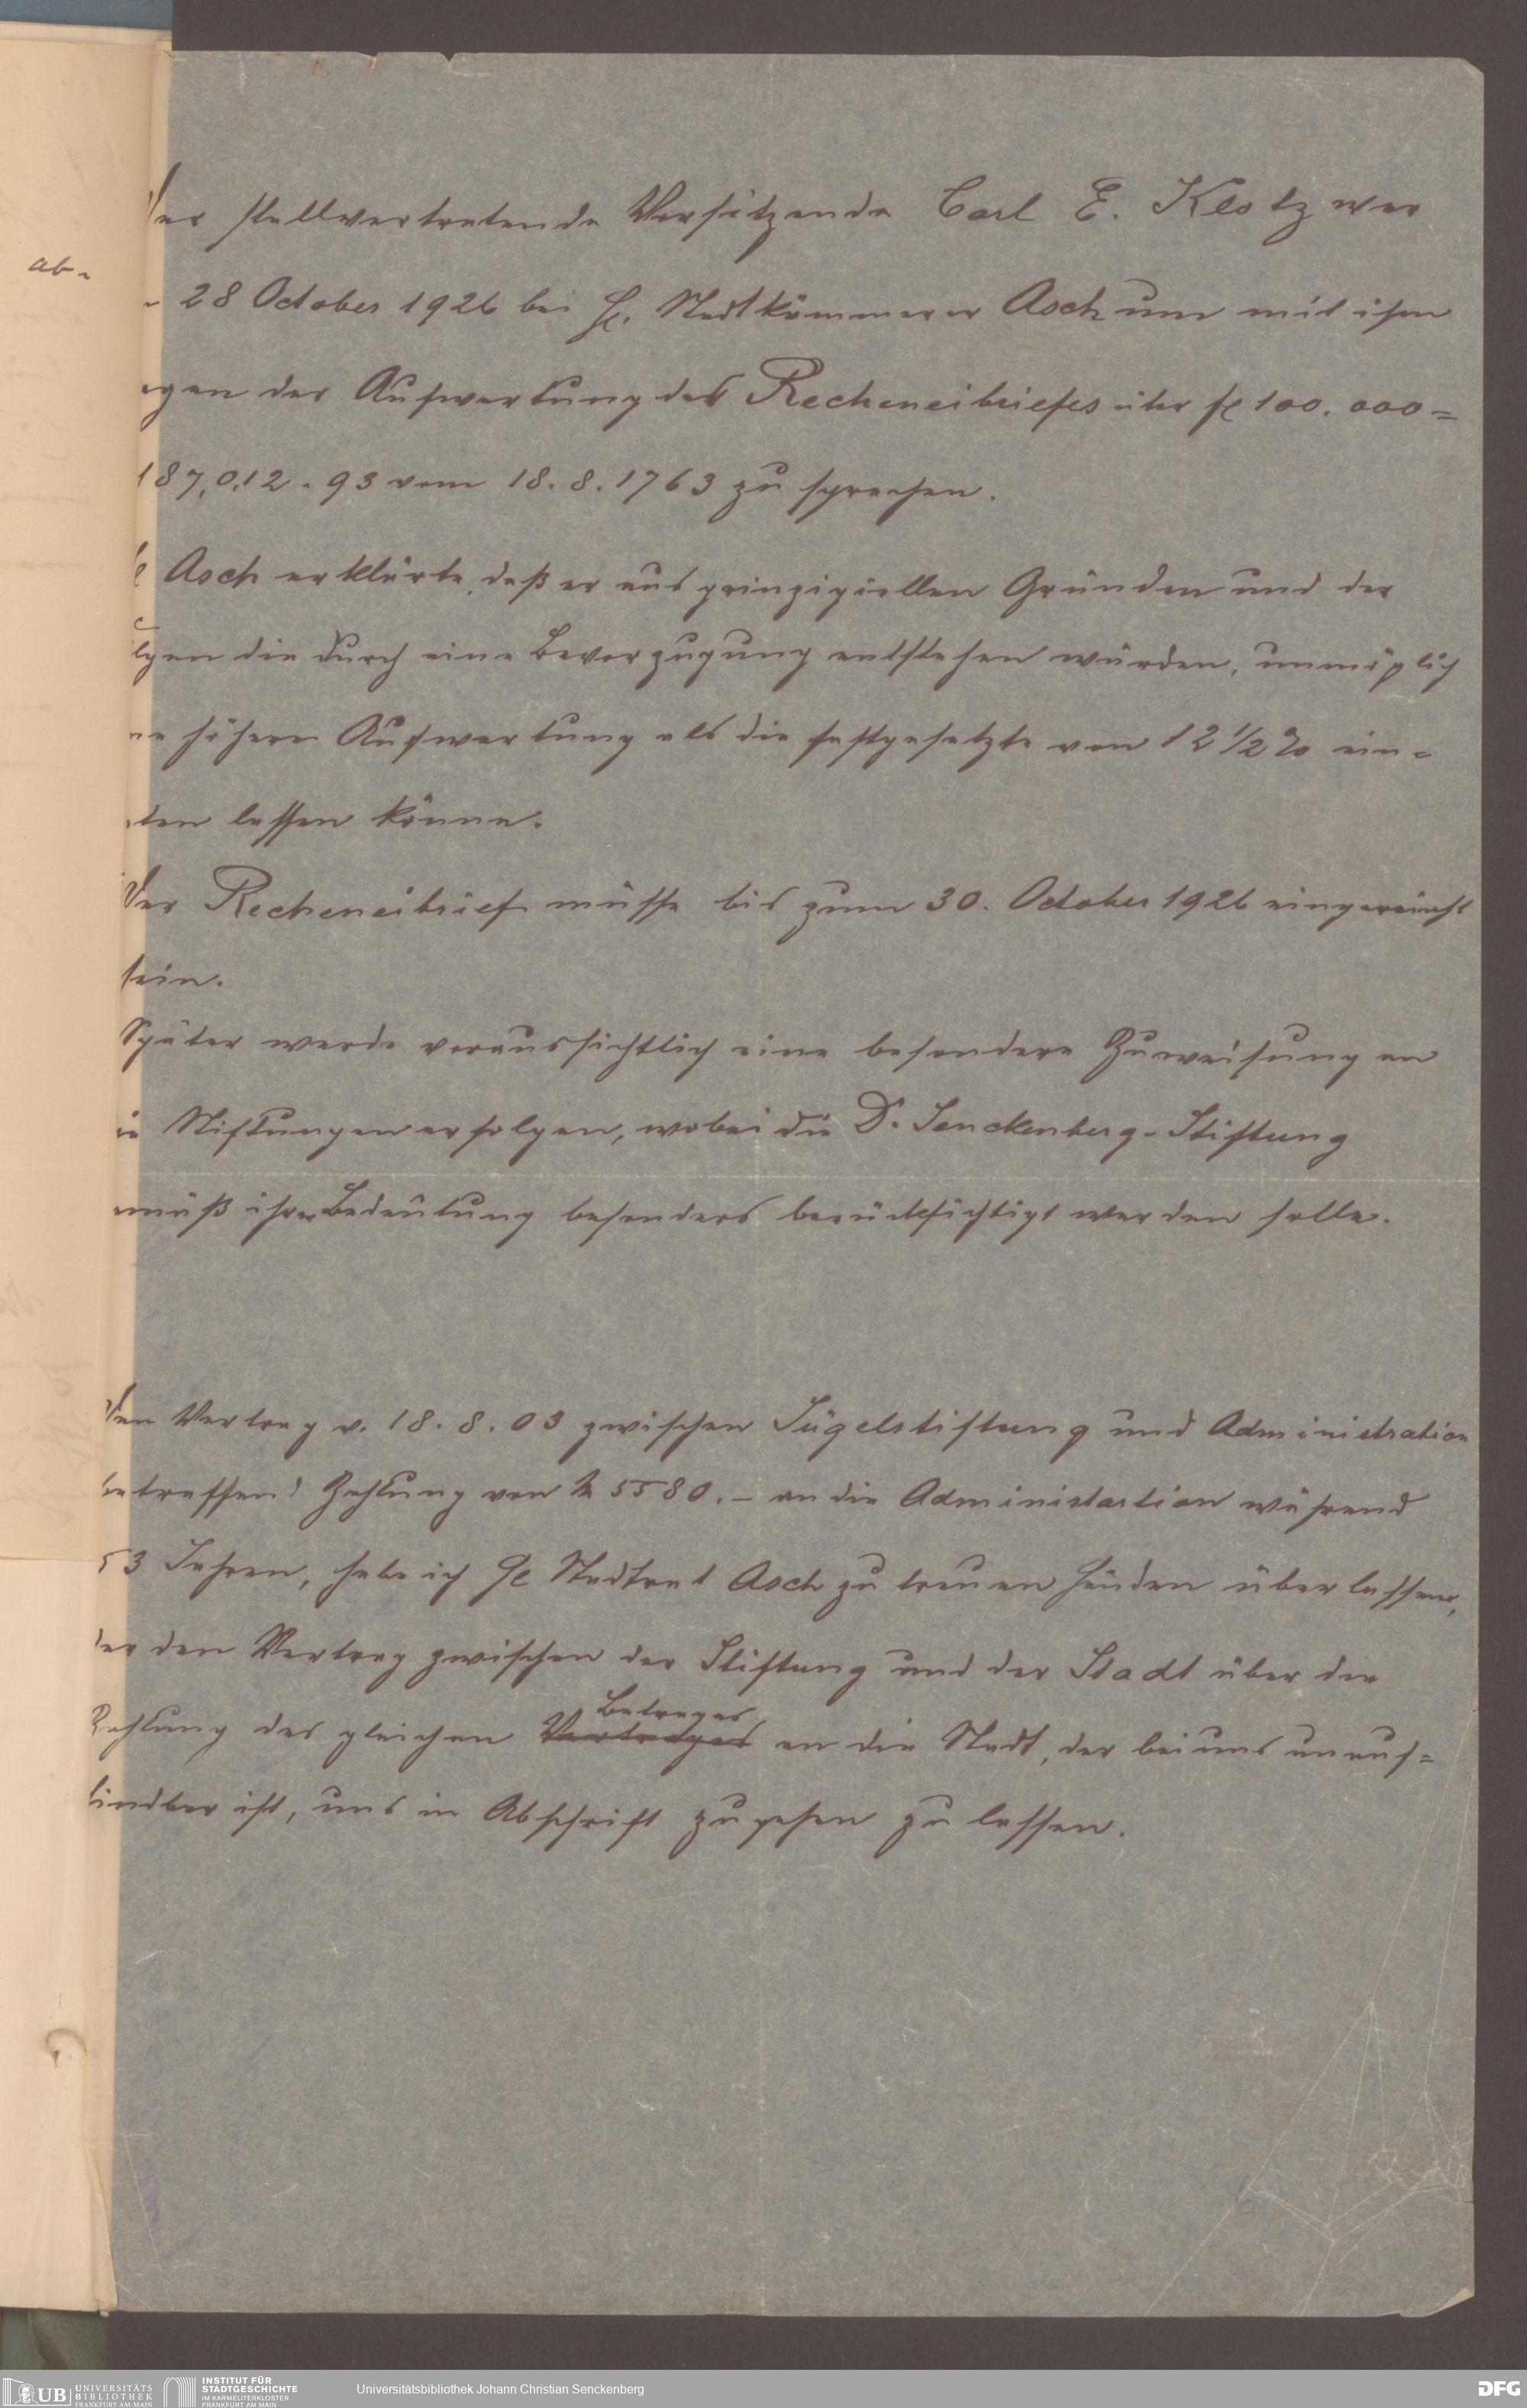 ab-
Der stellvertretende Vorsitzende Carl E. Klotz war
28 October 1926 bei H. Stadtkämmerer Asch um mit ihm
egen der Aufwertung des Recheneibriefes über fl 100.000=
187,012.93 vom 18.8.1763 zu sprechen.
Asch erklärte, daß er aus prinzipiellen Gründen und der
lgen die durch eine Bevorzugung entstehen würden, unmöglich
ne höhere Aufwertung als die festgesetzte von 12 1/2 % ein=
ten lassen könne.
Der Recheneibrief müsse bis zum 30. October 1926 eingereicht
sein.
Später werde voraussichtlich eine besondere Zuweisung an
ie Stiftungen erfolgen, wobei die Dr. Senckenberg-Stiftung
emäß ihrer Bedeutung besonders berücksichtigt werden solle.
Den Vertrag v. 18.8.03 zwischen Jügelstiftung und Administration
betreffend Zahlung von M 5580.- an die Administartion während
53 Jahren, habe ich H Stadtrat Asch zu treuen Händen überlassen,
der den Vertrag zwischen der Stiftung und der Stadt über die
Zahlung des gleichen Vertrages Betrages an die Stadt, der bei uns unauf=
findbar ist, uns in Abschrift zugehen zu lassen.
UB UNIVERSITÄTS
BIBLIOTHEK
FRANKFURT AM MAIN
INSTITUT FÜR
STADTGESCHICHTE
IM KARMELITERKLOSTER
FRANKFURT AM MAIN
Universitätsbibliothek Johann Christian Senckenberg
DFG